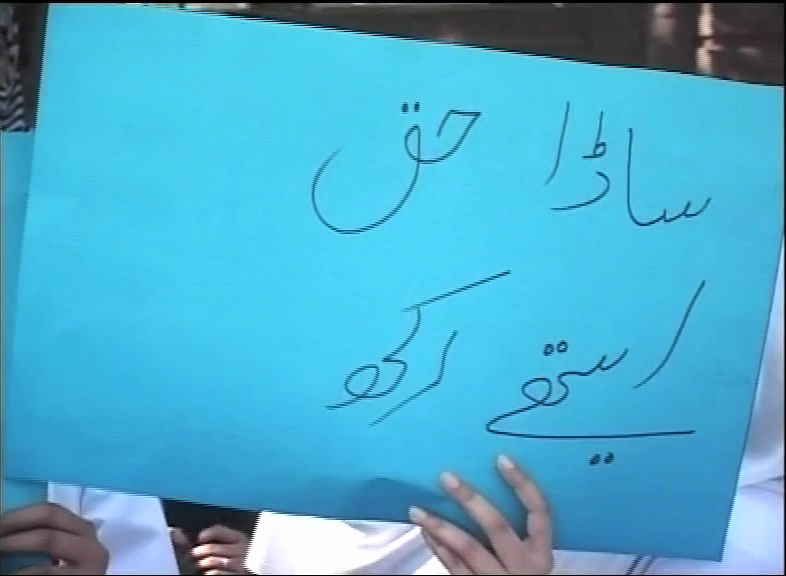 ساڈا حق
ایتھے رکھ